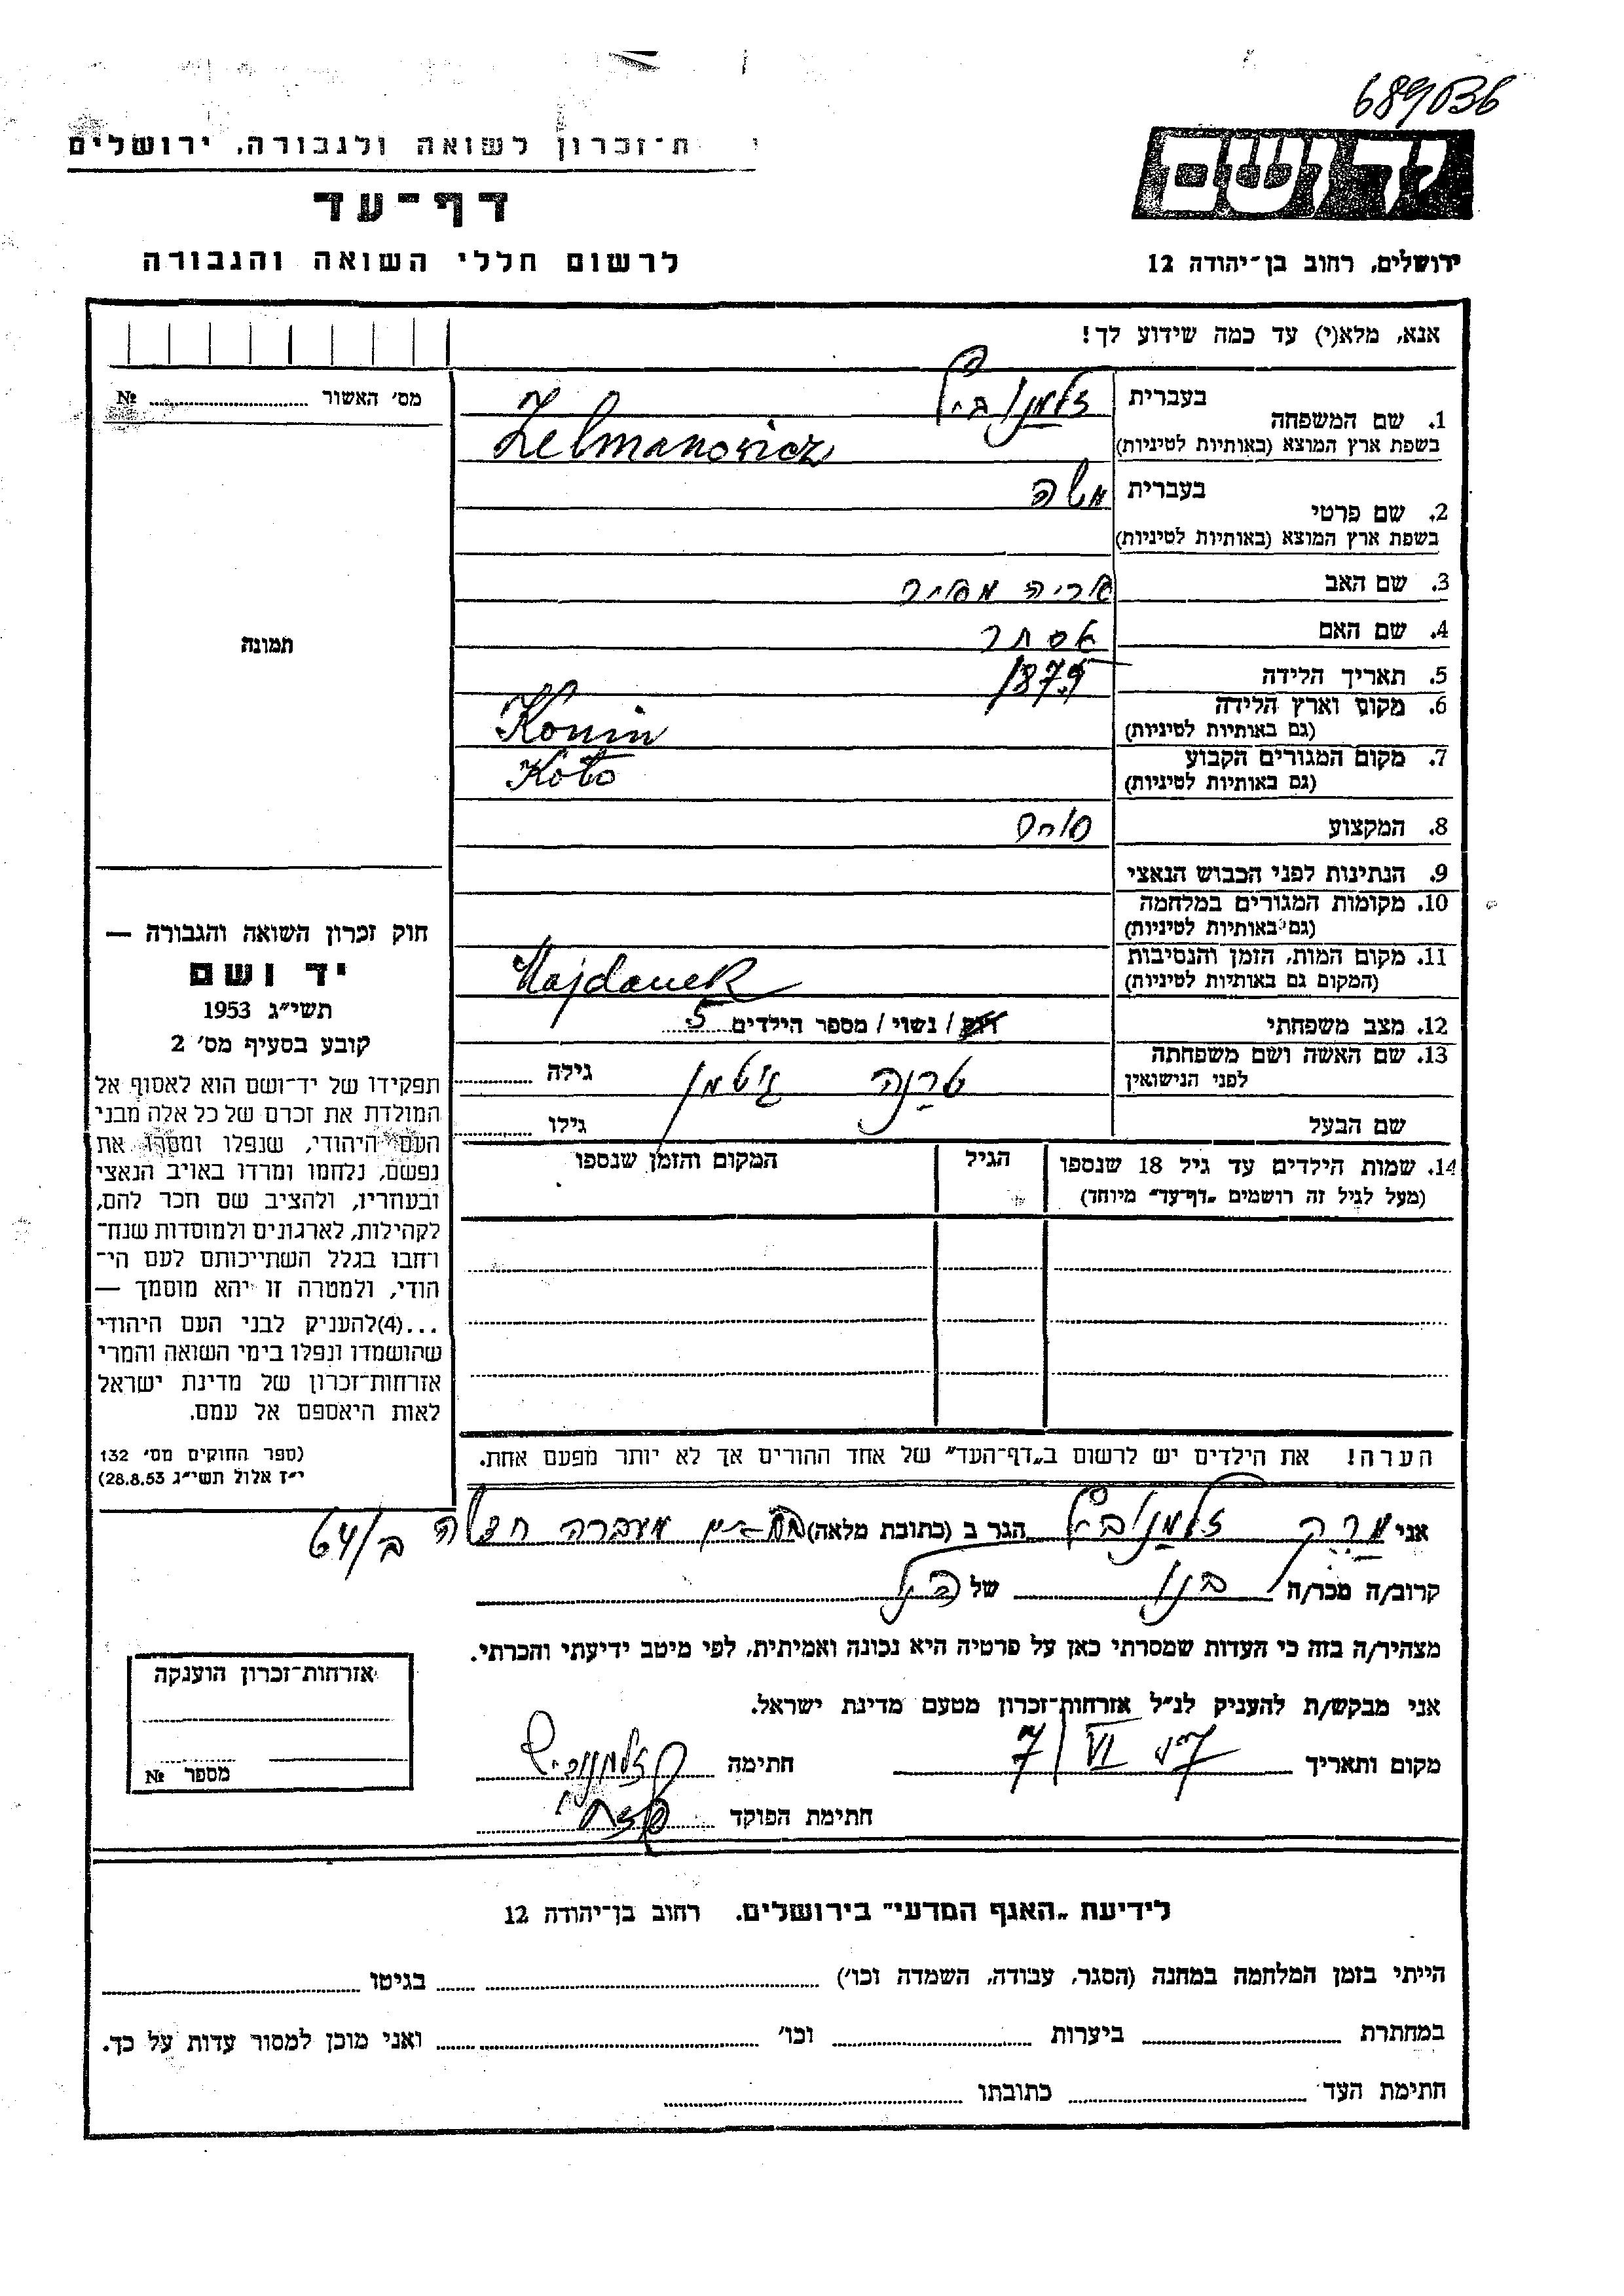 689036
י ת־זכרון לשואה ולגבורה, ירושלים
דף־עד
לרשום חללי השואה והגבורה
יד ושם
ירושלים, רחוב בן־יהודה 12
אנא, מלא(י) עד כמה שידוע לך!
מס׳ האשור № 
תמונה
1. שם המשפחה
בעברית זלמנוביץ
בשפת ארץ המוצא (באותיות לטיניות) Zelmanowicz
2. שם פרטי
בעברית משה
בשפת ארץ המוצא (באותיות לטיניות)
3. שם האב אריה מאיר
4. שם האם אסתר
5. תאריך הלידה 1879
6. מקום וארץ הלידה
(גם באותיות לטיניות) Konin
7. מקום המגורים הקבוע
(גם באותיות לטיניות) Koło
8. המקצוע סוחר
9. הנתינות לפני הכבוש הנאצי
10. מקומות המגורים במלחמה
(גם באותיות לטיניות)
11. מקום המות, הזמן והנסיבות
(המקום גם באותיות לטיניות) Majdanek
12. מצב משפחתי רווק / נשוי / מספר הילדים 5
13. שם האשה ושם משפחתה
לפני הנישואין גילה
שם הבעל גילו
14. שמות הילדים עד גיל 18 שנספו
(מעל לגיל זה רושמים „דף־עד״ מיוחד)
הגיל
המקום והזמן שנספו
חוק זכרון השואה והגבורה —
יד ושם
תשי״ג 1953
קובע בסעיף מס׳ 2
תפקידו של יד־ושם הוא לאסוף אל
המולדת את זכרם של כל אלה מבני
העם היהודי, שנפלו ומסרו את
נפשם, נלחמו ומרדו באויב הנאצי
ובעוזריו, ולהציב שם וזכר להם,
לקהילות, לארגונים ולמוסדות שנח־
רחבו בגלל השתייכותם לעם הי־
הודי, ולמטרה זו יהא מוסמך —
...(4)להעניק לבני העם היהודי
שהושמדו ונפלו בימי השואה והמרי
אזרחות־זכרון של מדינת ישראל
לאות היאספם אל עמם.
(ספר החוקים מס׳ 132
י״ז אלול תשי״ג 28.8.53)
הערה! את הילדים יש לרשום ב„דף־העד״ של אחד ההורים אך לא יותר מפעם אחת.
אני זלמנוביץ הגר ב (כתובת מלאה) מעברה ב/64
קרוב/ה מכר/ה בנו של הנ״ל
מצהיר/ה בזה כי העדות שמסרתי כאן על פרטיה היא נכונה ואמיתית, לפי מיטב ידיעתי והכרתי.
אני מבקש/ת להעניק לנ״ל אזרחות־זכרון מטעם מדינת ישראל.
מקום ותאריך 7/VI חתימה זלמנוביץ
חתימת הפוקד
אזרחות־זכרון הוענקה
מספר №
לידיעת „האגף המדעי״ בירושלים, רחוב בן־יהודה 12
הייתי בזמן המלחמה במחנה (הסגר, עבודה, השמדה וכו׳) בגיטו
במחתרת ביערות וכו׳ ואני מוכן למסור עדות על כך.
חתימת העד כתובתו